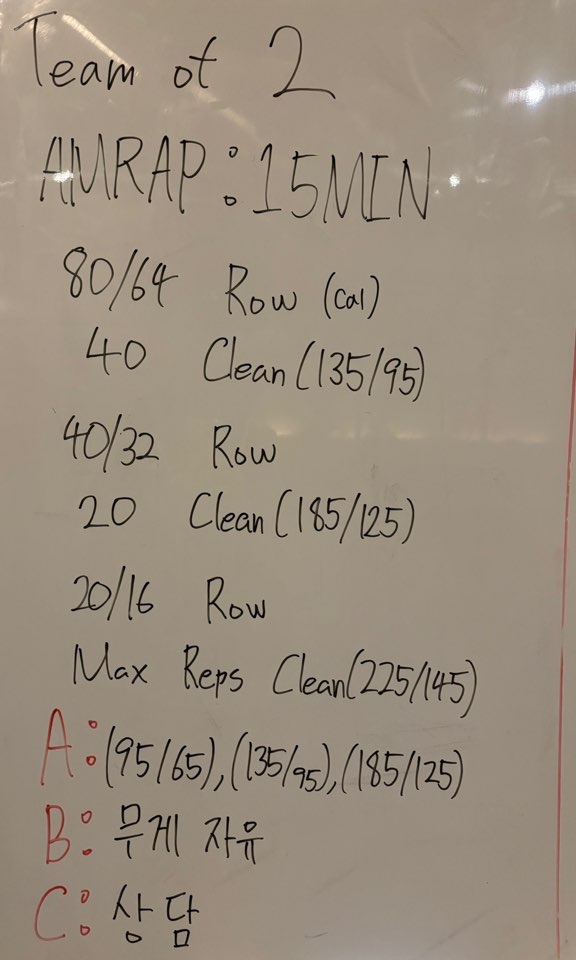 Team of 2
AMRAP: 15MIN
80/64 Row (cal)
40 Clean (135/95)
40/32 Row
20 Clean (185/125)
20/16 Row
Max Reps Clean (225/145)
A: (95/65), (135/95), (185/125)
B: 무게 자유
C: 상담